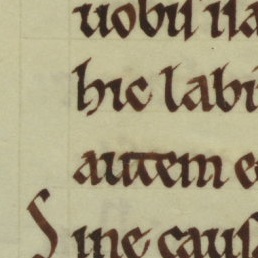 uobis
hic labi
autem e
Sine caus